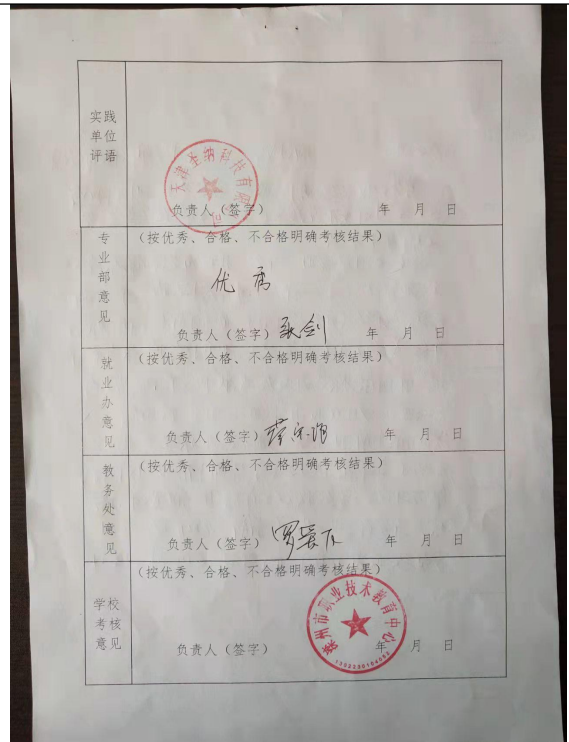 实践
单位
评语
天津圣纳科技有限公司
负责人（签字）　　年　月　日
专业部意见
（按优秀、合格、不合格明确考核结果）
优秀
负责人（签字）　　年　月　日
就业办意见
（按优秀、合格、不合格明确考核结果）
负责人（签字）　　年　月　日
教务处意见
（按优秀、合格、不合格明确考核结果）
负责人（签字）　　年　月　日
学校
考核
意见
（按优秀、合格、不合格明确考核结果）
市职业技术教育中心
负责人（签字）　　年　月　日